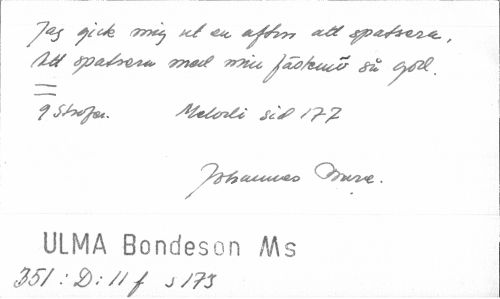 Jag gick mig ut en afton att spatsera,
Att spatsera med min fästmö så god.
9 Strofer. Melodi sid 177
Johannes
ULMA Bondeson Ms
351 : D : 11 f s 173